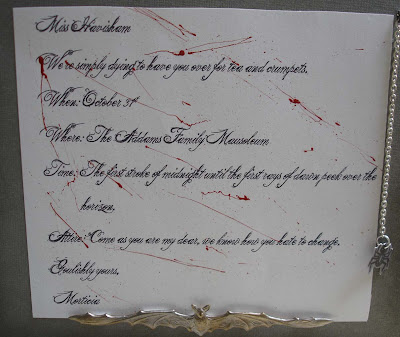 Miss Havisham
We're simply dying to have you over for tea and crumpets.
When: October 31st
Where: The Addams Family Mausoleum
Time: The first stroke of midnight until the first rays of dawn peek over the
horizon.
Attire: Come as you are my dear, we know how you hate to change.
Goulishly yours,
Morticia